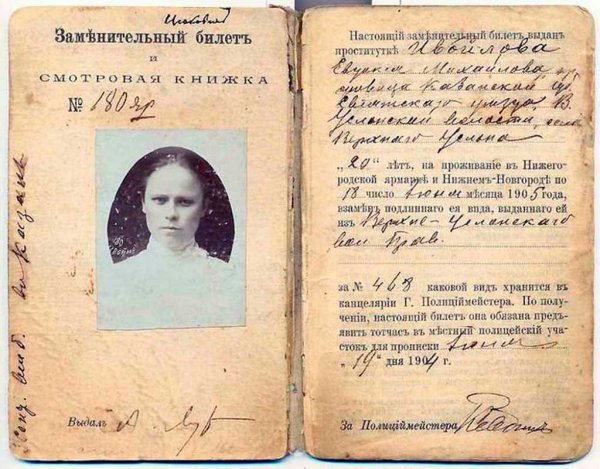 Замѣнительный билетъ
и
СМОТРОВАЯ КНИЖКА
№ 180яр
Выдалъ
Настоящій замѣнительный билетъ выданъ
проституткѣ
Евдокія Михайлова
Казанской
уѣзда, В.
Услонской волости, села
Верхняго Услона
„20" лѣтъ, на проживаніе въ Нижего-
родской ярмаркѣ и Нижнемъ-Новгородѣ по
18 число Іюня мѣсяца 1905 года,
взамѣнъ подлиннаго ея вида, выданнаго ей
изъ Верхне-Услонскаго
вол Прав.
за № 468 каковой видъ хранится въ
канцеляріи Г. Полиціймейстера. По полу-
ченіи, настоящій билетъ она обязана предъ-
явить тотчасъ въ мѣстный полицейскій уча-
стокъ для прописки Іюня
„19" дня 1904 г.
За Полиціймейстера